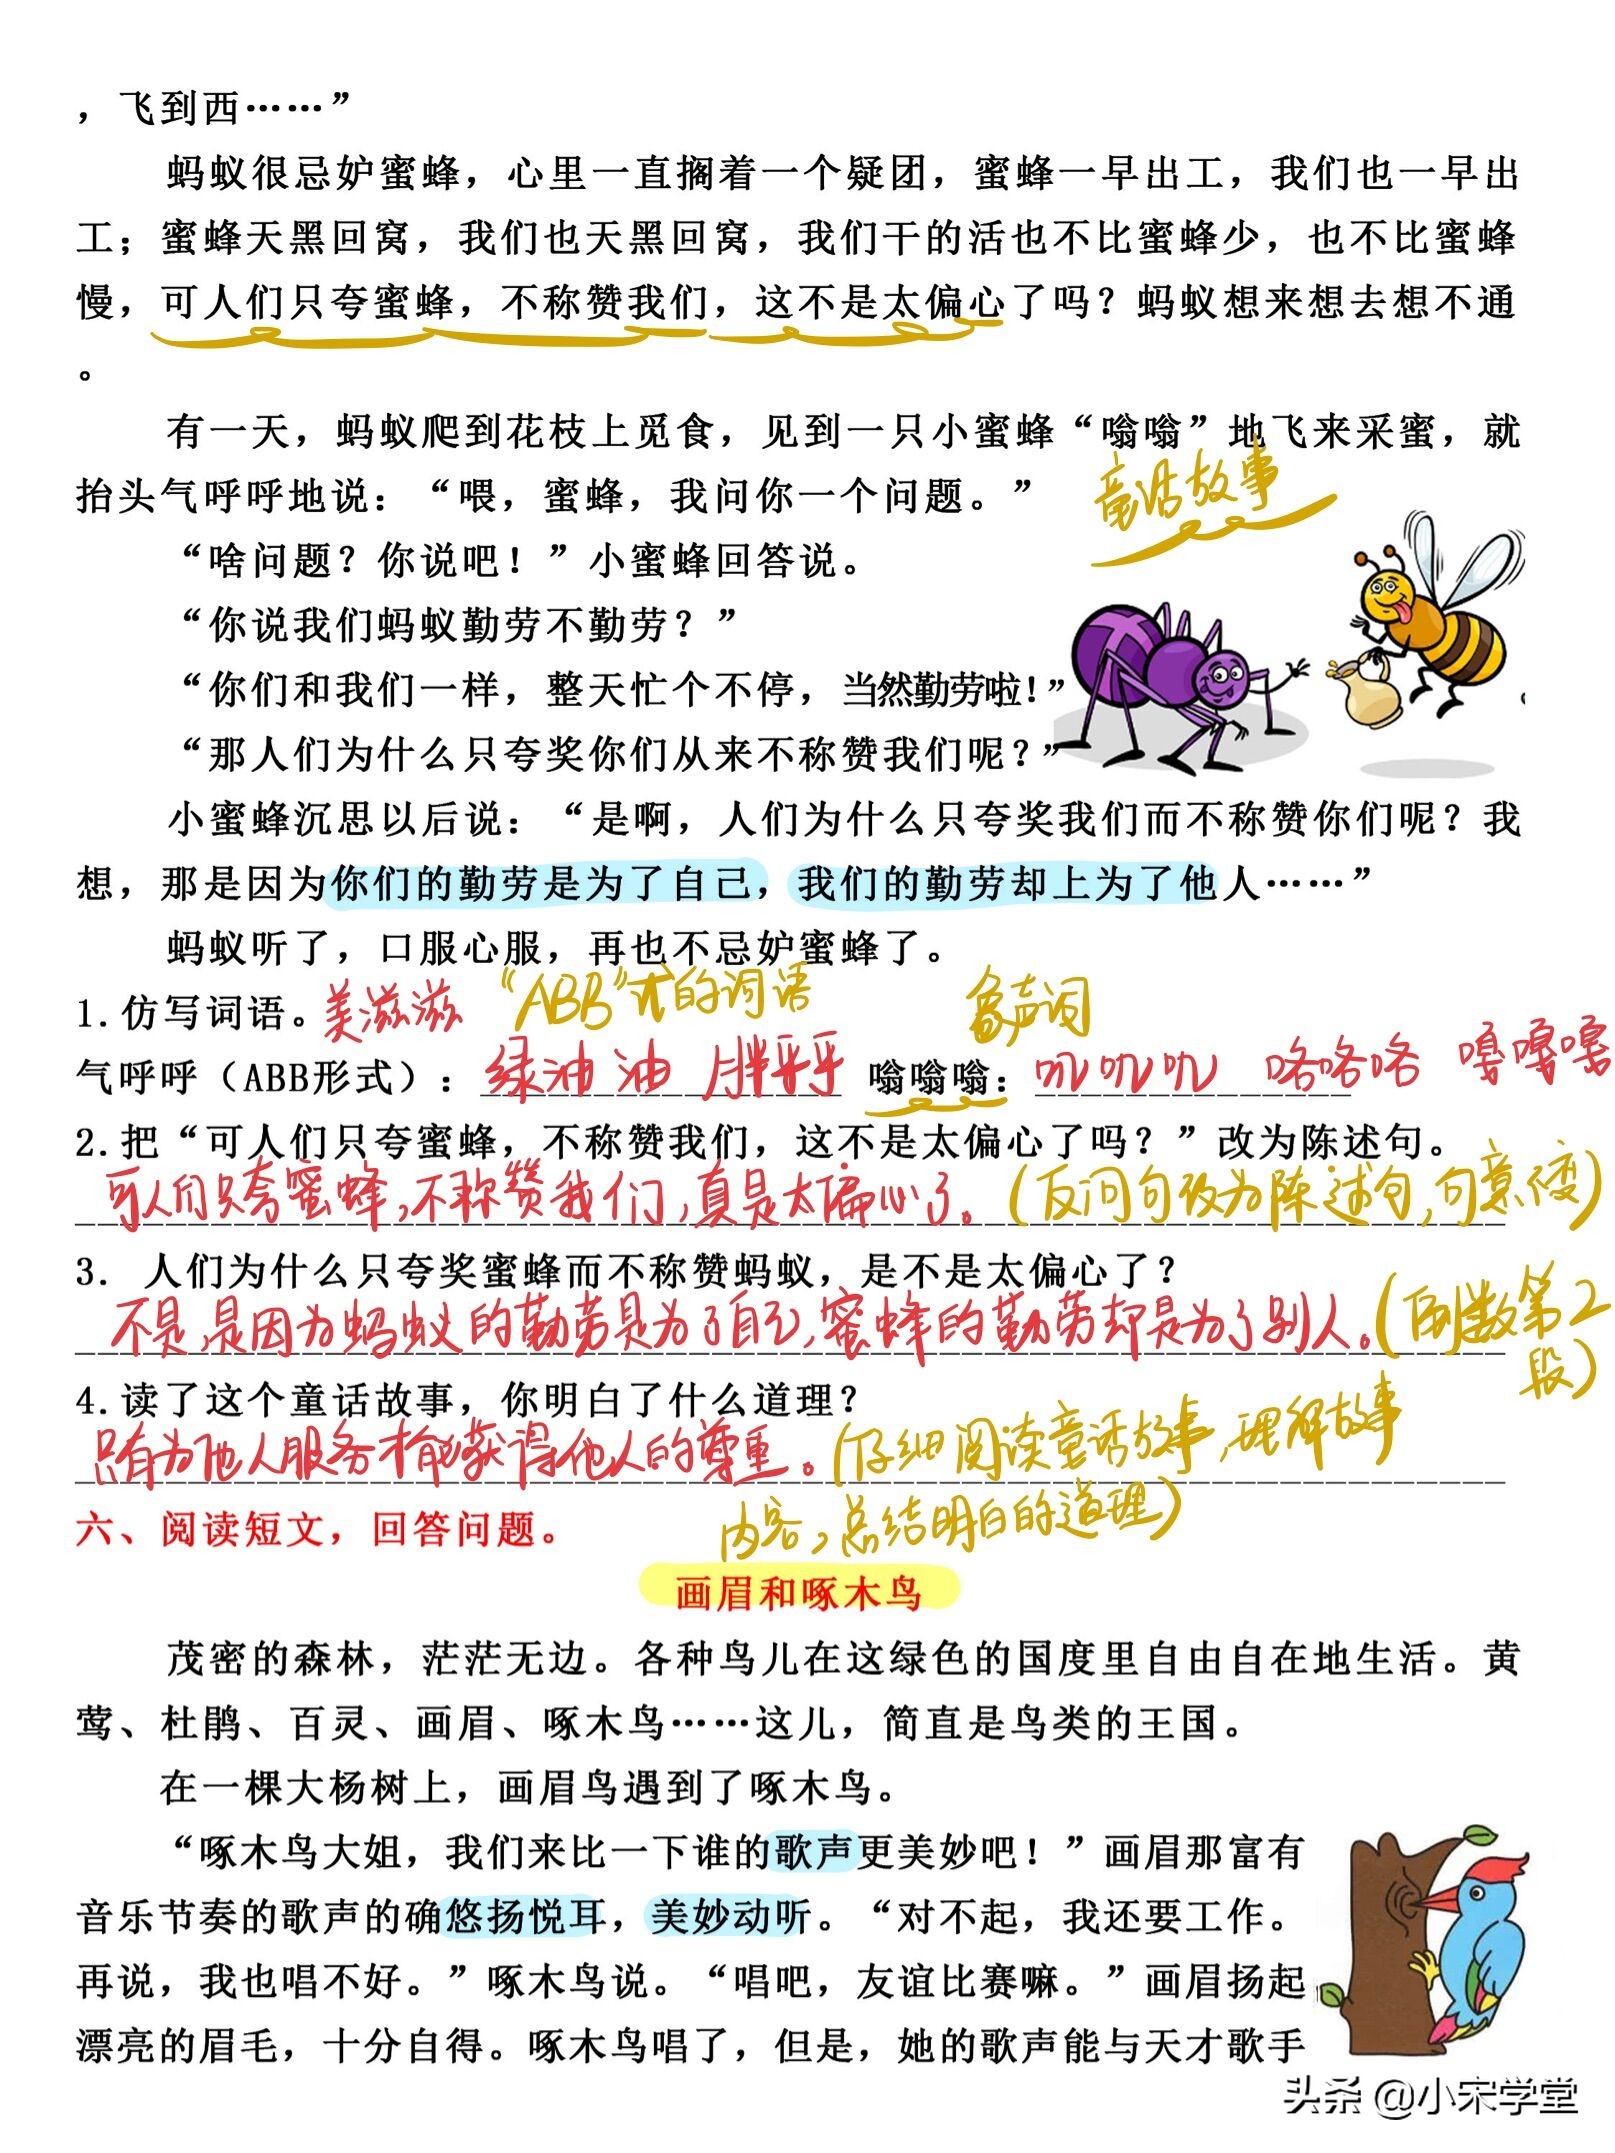 ，飞到西……”
蚂蚁很忌妒蜜蜂，心里一直搁着一个疑团，蜜蜂一早出工，我们也一早出
工；蜜蜂天黑回窝，我们也天黑回窝，我们干的活也不比蜜蜂少，也不比蜜蜂
慢，可人们只夸蜜蜂，不称赞我们，这不是太偏心了吗？蚂蚁想来想去想不通
。
有一天，蚂蚁爬到花枝上觅食，见到一只小蜜蜂“嗡嗡”地飞来采蜜，就
抬头气呼呼地说：“喂，蜜蜂，我问你一个问题。”
童话故事
“啥问题？你说吧！”小蜜蜂回答说。
“你说我们蚂蚁勤劳不勤劳？”
“你们和我们一样，整天忙个不停，当然勤劳啦！”
“那人们为什么只夸奖你们从来不称赞我们呢？”
小蜜蜂沉思以后说：“是啊，人们为什么只夸奖我们而不称赞你们呢？我
想，那是因为你们的勤劳是为了自己，我们的勤劳却上为了他人……”
蚂蚁听了，口服心服，再也不忌妒蜜蜂了。
1.仿写词语。美滋滋 “ABB”式的词语 象声词
气呼呼（ABB形式）：绿油油 胖乎乎 嗡嗡嗡：叽叽叽 咯咯咯 嘎嘎嘎
2.把“可人们只夸蜜蜂，不称赞我们，这不是太偏心了吗？”改为陈述句。
可人们只夸蜜蜂，不称赞我们，真是太偏心了。（反问句改为陈述句，句意不变）
3. 人们为什么只夸奖蜜蜂而不称赞蚂蚁，是不是太偏心了？
不是，是因为蚂蚁的勤劳是为了自己，蜜蜂的勤劳却是为了别人。（倒数第2
段）
4.读了这个童话故事，你明白了什么道理？
只有为他人服务才能获得他人的尊重。（仔细阅读童话故事，理解故事
内容，总结明白的道理）
六、阅读短文，回答问题。
画眉和啄木鸟
茂密的森林，茫茫无边。各种鸟儿在这绿色的国度里自由自在地生活。黄
莺、杜鹃、百灵、画眉、啄木鸟……这儿，简直是鸟类的王国。
在一棵大杨树上，画眉鸟遇到了啄木鸟。
“啄木鸟大姐，我们来比一下谁的歌声更美妙吧！”画眉那富有
音乐节奏的歌声的确悠扬悦耳，美妙动听。“对不起，我还要工作。
再说，我也唱不好。”啄木鸟说。“唱吧，友谊比赛嘛。”画眉扬起
漂亮的眉毛，十分自得。啄木鸟唱了，但是，她的歌声能与天才歌手
头条 @小宋学堂